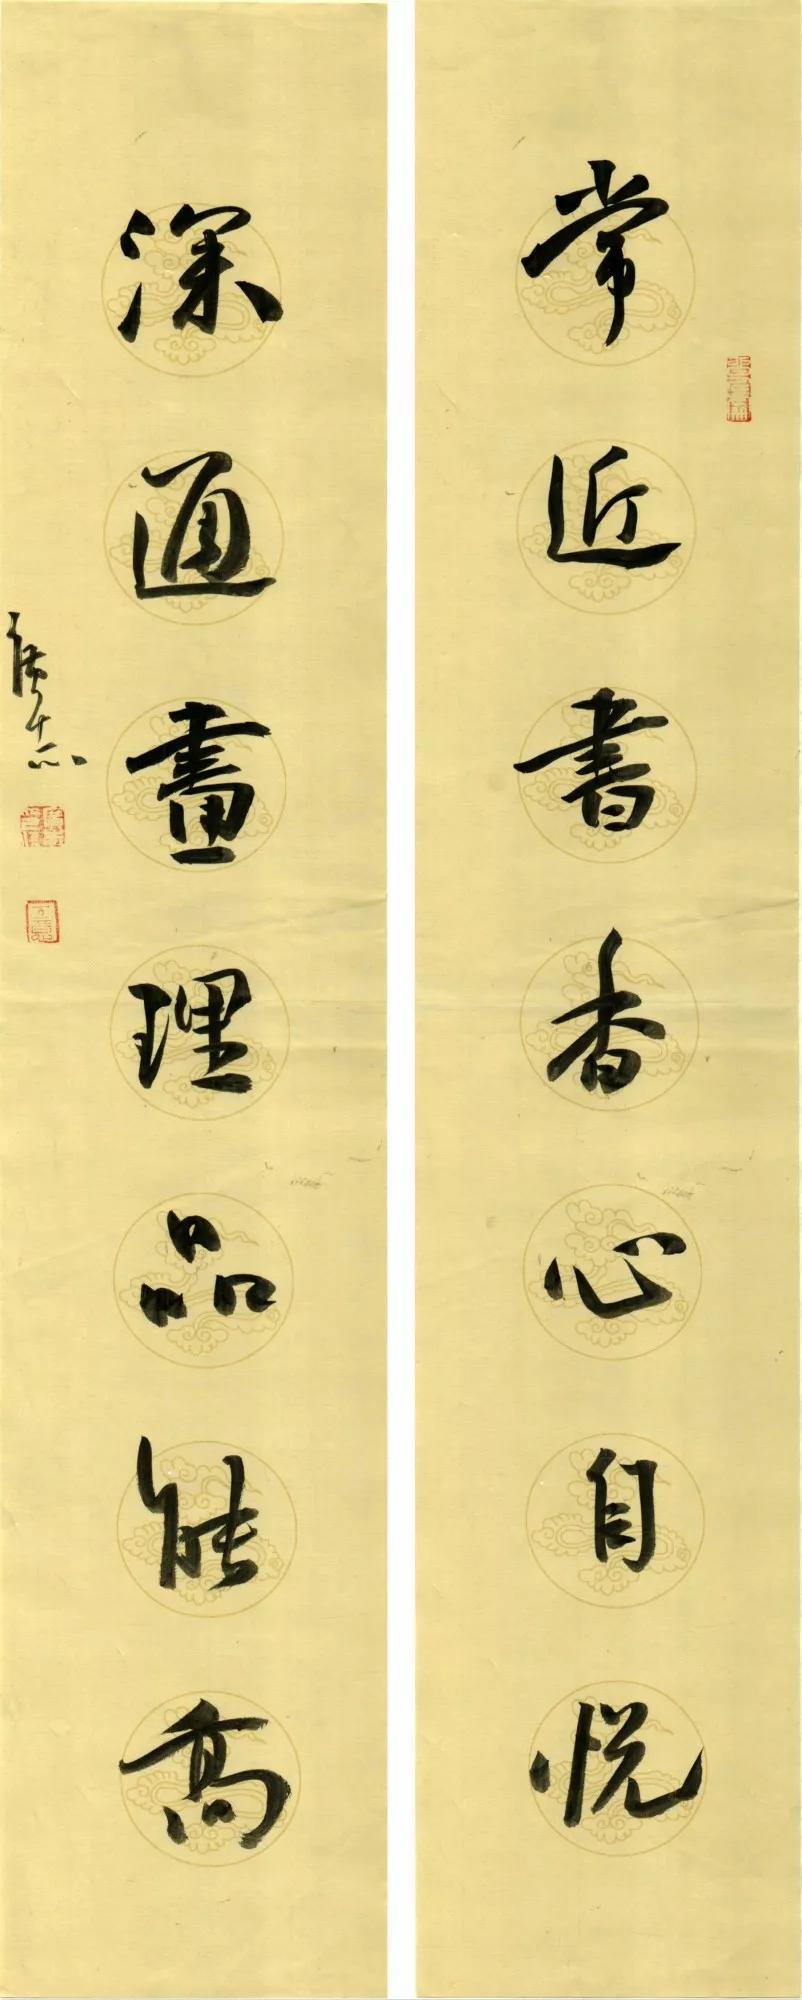 常近書香心自悦
深通畫理品能高